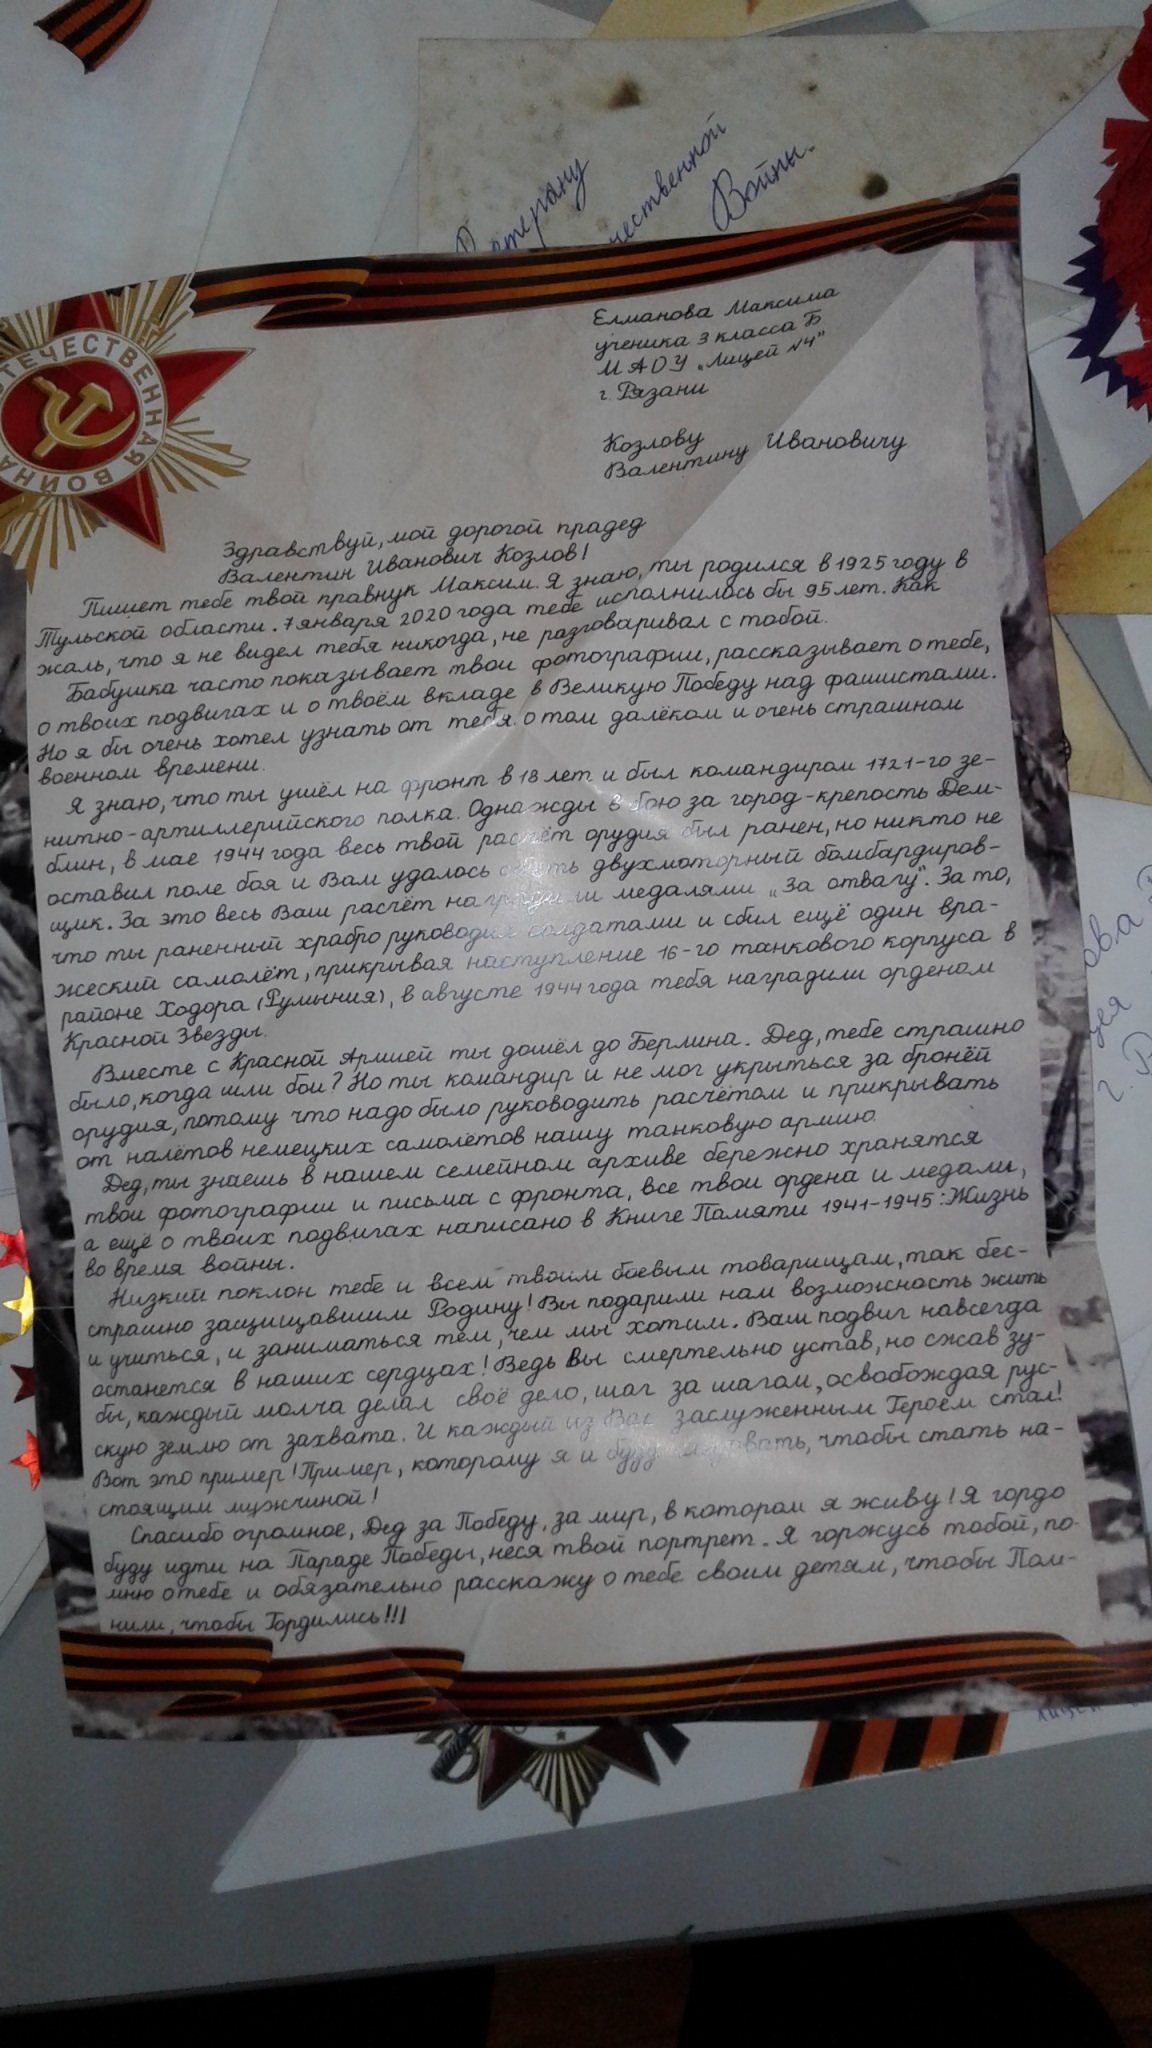 Ветерану
чественной
Войны.
ОТЕЧЕСТВЕННАЯ ВОЙНА
Елманова Максима
ученика 3 класса Б
МАОУ „Лицей №4"
г. Рязани
Козлову
Валентину Ивановичу
Здравствуй, мой дорогой прадед
Валентин Иванович Козлов!
Пишет тебе твой правнук Максим. Я знаю, ты родился в 1925 году в
Тульской области. 7 января 2020 года тебе исполнилось бы 95 лет. Как
жаль, что я не видел тебя никогда, не разговаривал с тобой.
Бабушка часто показывает твои фотографии, рассказывает о тебе,
о твоих подвигах и о твоём вкладе в Великую Победу над фашистами.
Но я бы очень хотел узнать от тебя о том далёком и очень страшном
военном времени.
Я знаю, что ты ушёл на фронт в 18 лет и был командиром 1721-го зе-
нитно-артиллерийского полка. Однажды в бою за город-крепость Дем-
блин, в мае 1944 года весь твой расчёт орудия был ранен, но никто не
оставил поле боя и Вам удалось сбить двухмоторный бомбардиров-
щик. За это весь Ваш расчёт наградили медалями „За отвагу". За то,
что ты раненный храбро руководил солдатами и сбил ещё один вра-
жеский самолёт, прикрывая наступление 16-го танкового корпуса в
районе Ходора (Румыния), в августе 1944 года тебя наградили орденом
Красной Звезды.
Вместе с Красной Армией ты дошёл до Берлина. Дед, тебе страшно
было, когда шли бои? Но ты командир и не мог укрыться за бронёй
орудия, потому что надо было руководить расчётом и прикрывать
от налётов немецких самолётов нашу танковую армию.
Дед, ты знаешь в нашем семейном архиве бережно хранятся
твои фотографии и письма с фронта, все твои ордена и медали,
а ещё о твоих подвигах написано в Книге Памяти 1941-1945: Жизнь
во время войны.
Низкий поклон тебе и всем твоим боевым товарищам, так бес-
страшно защищавшим Родину! Вы подарили нам возможность жить
и учиться, и заниматься тем, чем мы хотим. Ваш подвиг навсегда
останется в наших сердцах! Ведь Вы смертельно устав, но сжав зу-
бы, каждый молча делал своё дело, шаг за шагом, освобождая рус-
скую землю от захвата. И каждый из Вас заслуженным Героем стал!
Вот это пример! Пример, которому я и буду следовать, чтобы стать на-
стоящим мужчиной!
Спасибо огромное, Дед за Победу, за мир, в котором я живу! Я гордо
буду идти на Параде Победы, неся твой портрет. Я горжусь тобой, по-
мню о тебе и обязательно расскажу о тебе своим детям, чтобы Пом-
нили, чтобы Гордились!!!